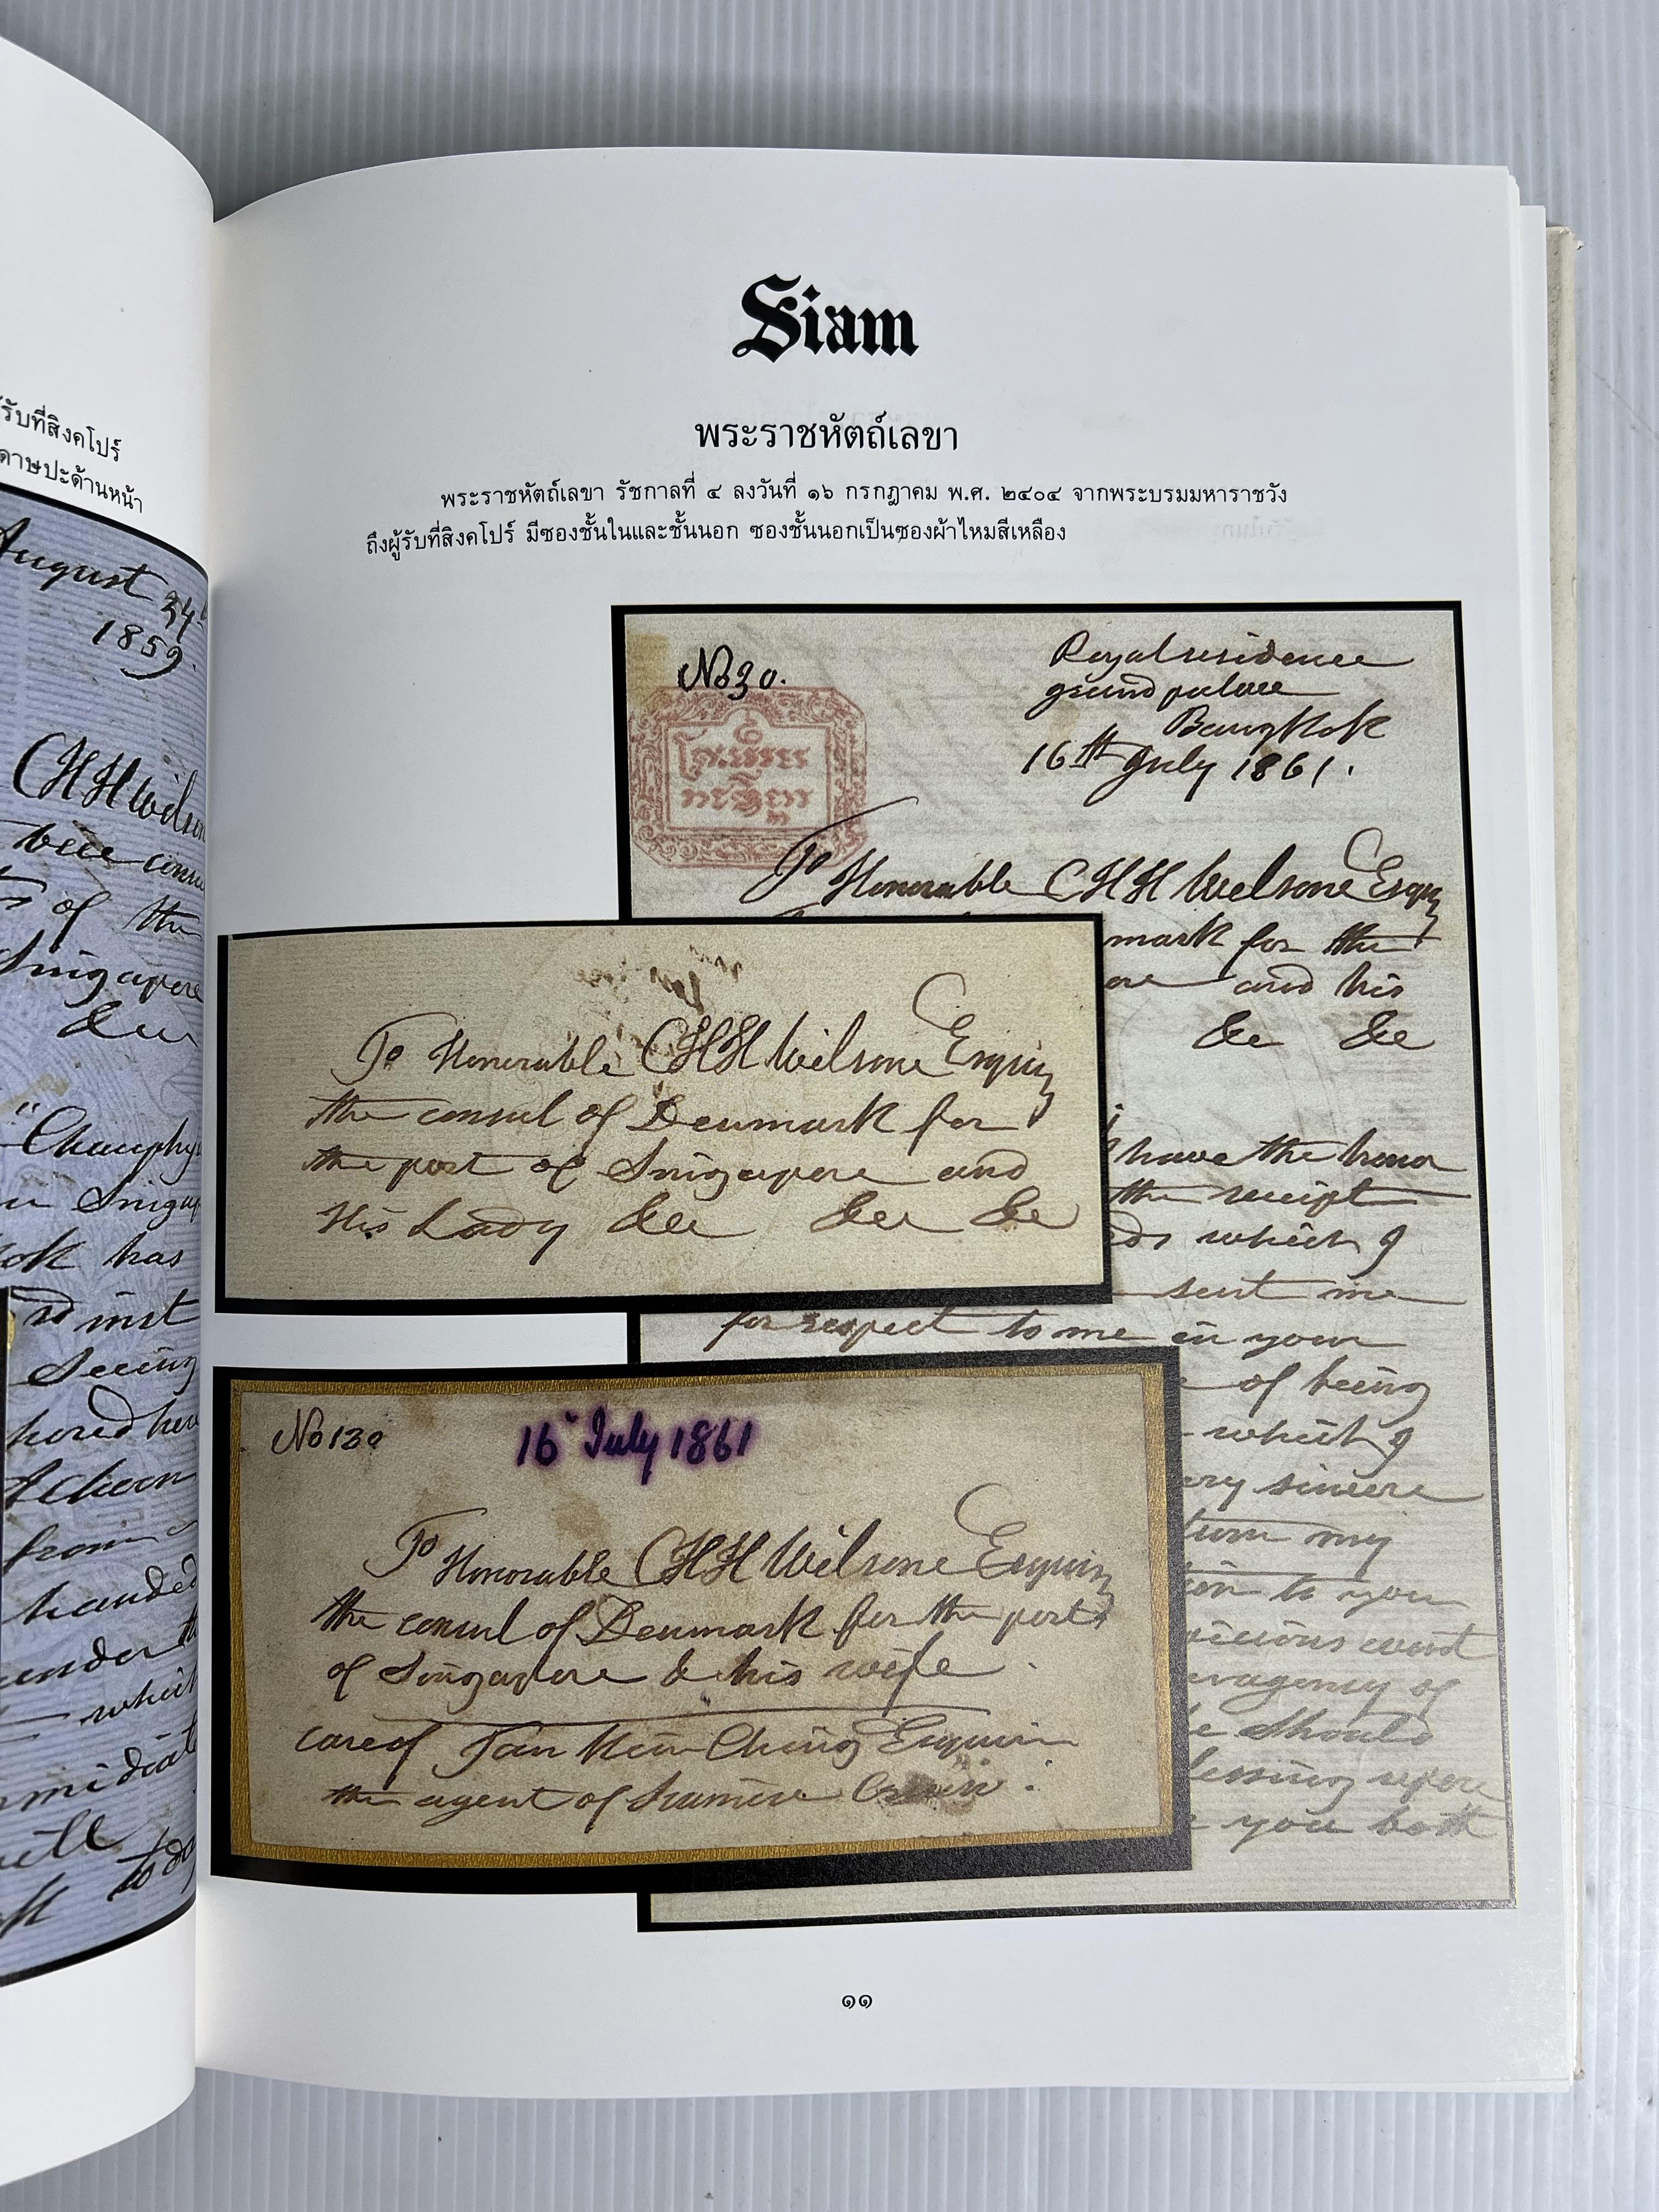 รับที่สิงคโปร์
ดาษปะด้านหน้า
August 24th
1859.
CHH Wilson
of the
Singapore
&cc
"Chauphy
Singap
has
inst
Seeing
hored here
from
handed
under the
which
mmediate
Siam
พระราชหัตถ์เลขา
พระราชหัตถ์เลขา รัชกาลที่ ๔ ลงวันที่ ๑๖ กรกฎาคม พ.ศ. ๒๔๐๔ จากพระบรมมหาราชวัง
ถึงผู้รับที่สิงคโปร์ มีซองชั้นในและชั้นนอก ซองชั้นนอกเป็นซองผ้าไหมสีเหลือง
No 30.
Royal residence
grand palace
Bangkok
16th July 1861.
To Honorable CHH Wilsone Esquire
mark for the
ore and his
&c &c
have the honor
the receipt
ds which I
sent me
for respect to me in your
of being
which I
ery sincere
turn my
tion to you
picious event
eragency of
e should
lessing upon
you both
To Honorable CHH Wilsone Esquire
the consul of Denmark for
the port of Singapore and
His Lady &cc &cc &c
No 130
16 July 1861
To Honorable CHH Wilsone Esquire
the consul of Denmark for the port
of Singapore & his wife
care of Tan Kim Ching Esquire
the agent of Siamese
๑๑